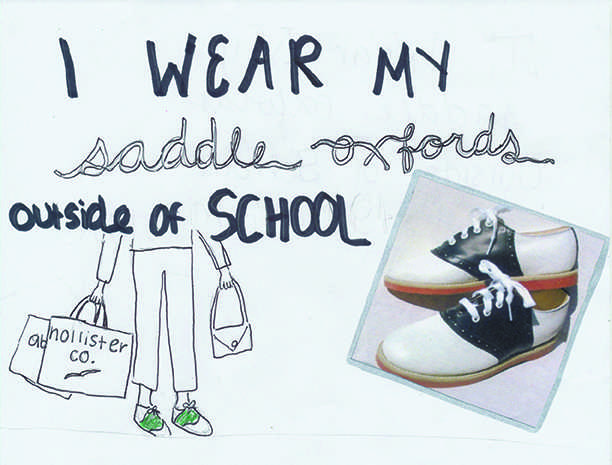 I WEAR MY
saddle oxfords
outside of SCHOOL
ab
hollister
co.